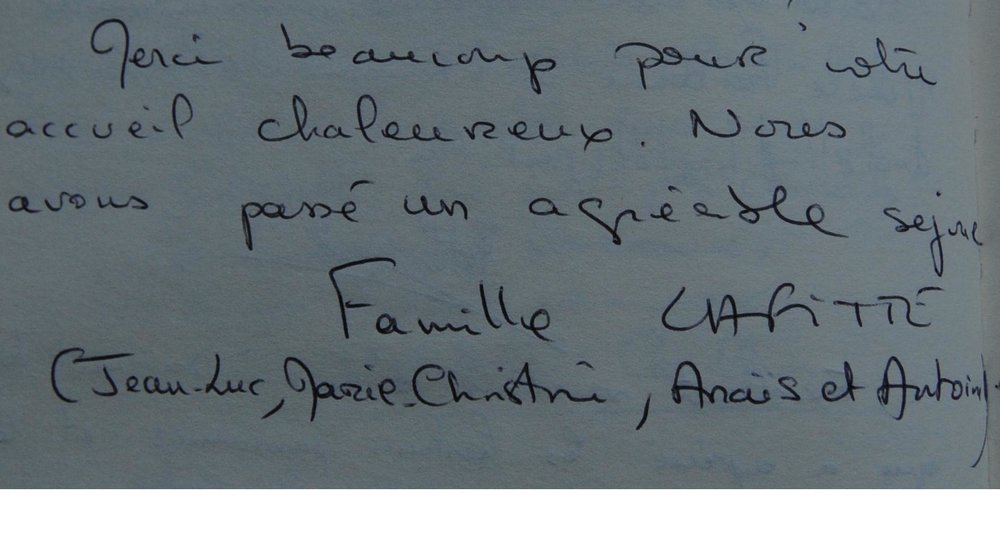 Merci beaucoup pour votre
accueil chaleureux. Nous
avons passé un agréable séjour
Famille LAFITTE
(Jean-Luc, Marie-Christine, Anaïs et Antoine)